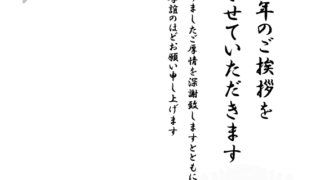 年のご挨拶を
せていただきます
ましたご厚情を深謝致しますとともに
誼のほどお願い申し上げます